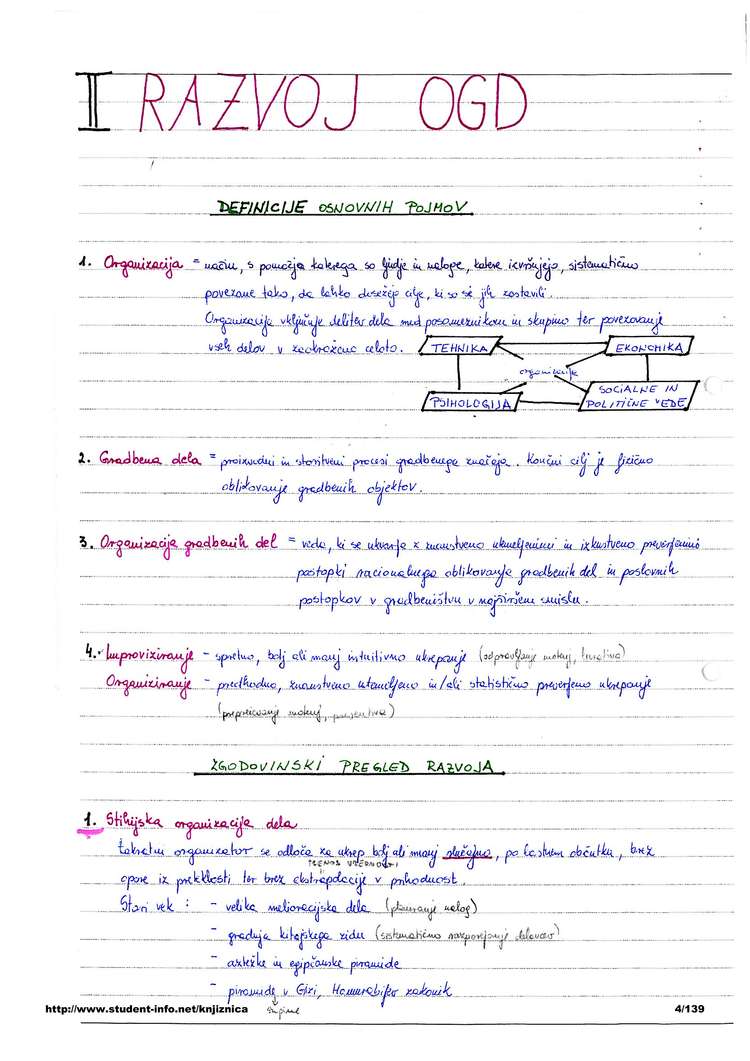 II RAZVOJ OGD
DEFINICIJE OSNOVNIH POJMOV
1. Organizacija = način, s pomočjo katerega so ljudje in naloge, katere izvršujejo, sistematično
povezane tako, da lahko dosežejo cilje, ki so si jih zastavili.
Organizacija vključuje delitev dela med posameznikom in skupino ter povezovanje
vseh delov v zaokroženo celoto.
TEHNIKA EKONOMIKA
organizacija
PSIHOLOGIJA SOCIALNE IN
POLITIČNE VEDE
2. Gradbena dela = proizvodni in storitveni procesi gradbenega značaja. Končni cilj je fizično
oblikovanje gradbenih objektov.
3. Organizacija gradbenih del = veda, ki se ukvarja z znanstveno utemeljenimi in izkustveno preverjenimi
postopki racionalnega oblikovanja gradbenih del in poslovnih
postopkov v gradbeništvu v najširšem smislu.
4. Improviziranje - spretno, bolj ali manj intuitivno ukrepanje (odpravljanje motenj, kurativa)
Organiziranje - predhodno, znanstveno utemeljeno in/ali statistično preverjeno ukrepanje
(preprečevanje motenj, preventiva)
ZGODOVINSKI PREGLED RAZVOJA
1. Stihijska organizacija dela
takratni organizator se odloča za ukrep bolj ali manj slučajno, po lastnem občutku, brez
PRENOS VREDNOSTI
opore iz preteklosti ter brez ekstrapolacije v prihodnost.
Stari vek : - velika melioracijska dela (planiranje nalog)
- gradnja kitajskega zidu (sistematično razporejanje delavcev)
- azteške in egipčanske piramide
- piramide v Gizi, Hamurabijev zakonik
http://www.student-info.net/knjiznica
4/139